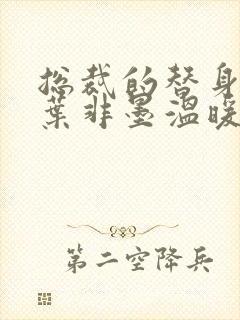 总裁的替身
叶非墨温暖
第二空降兵